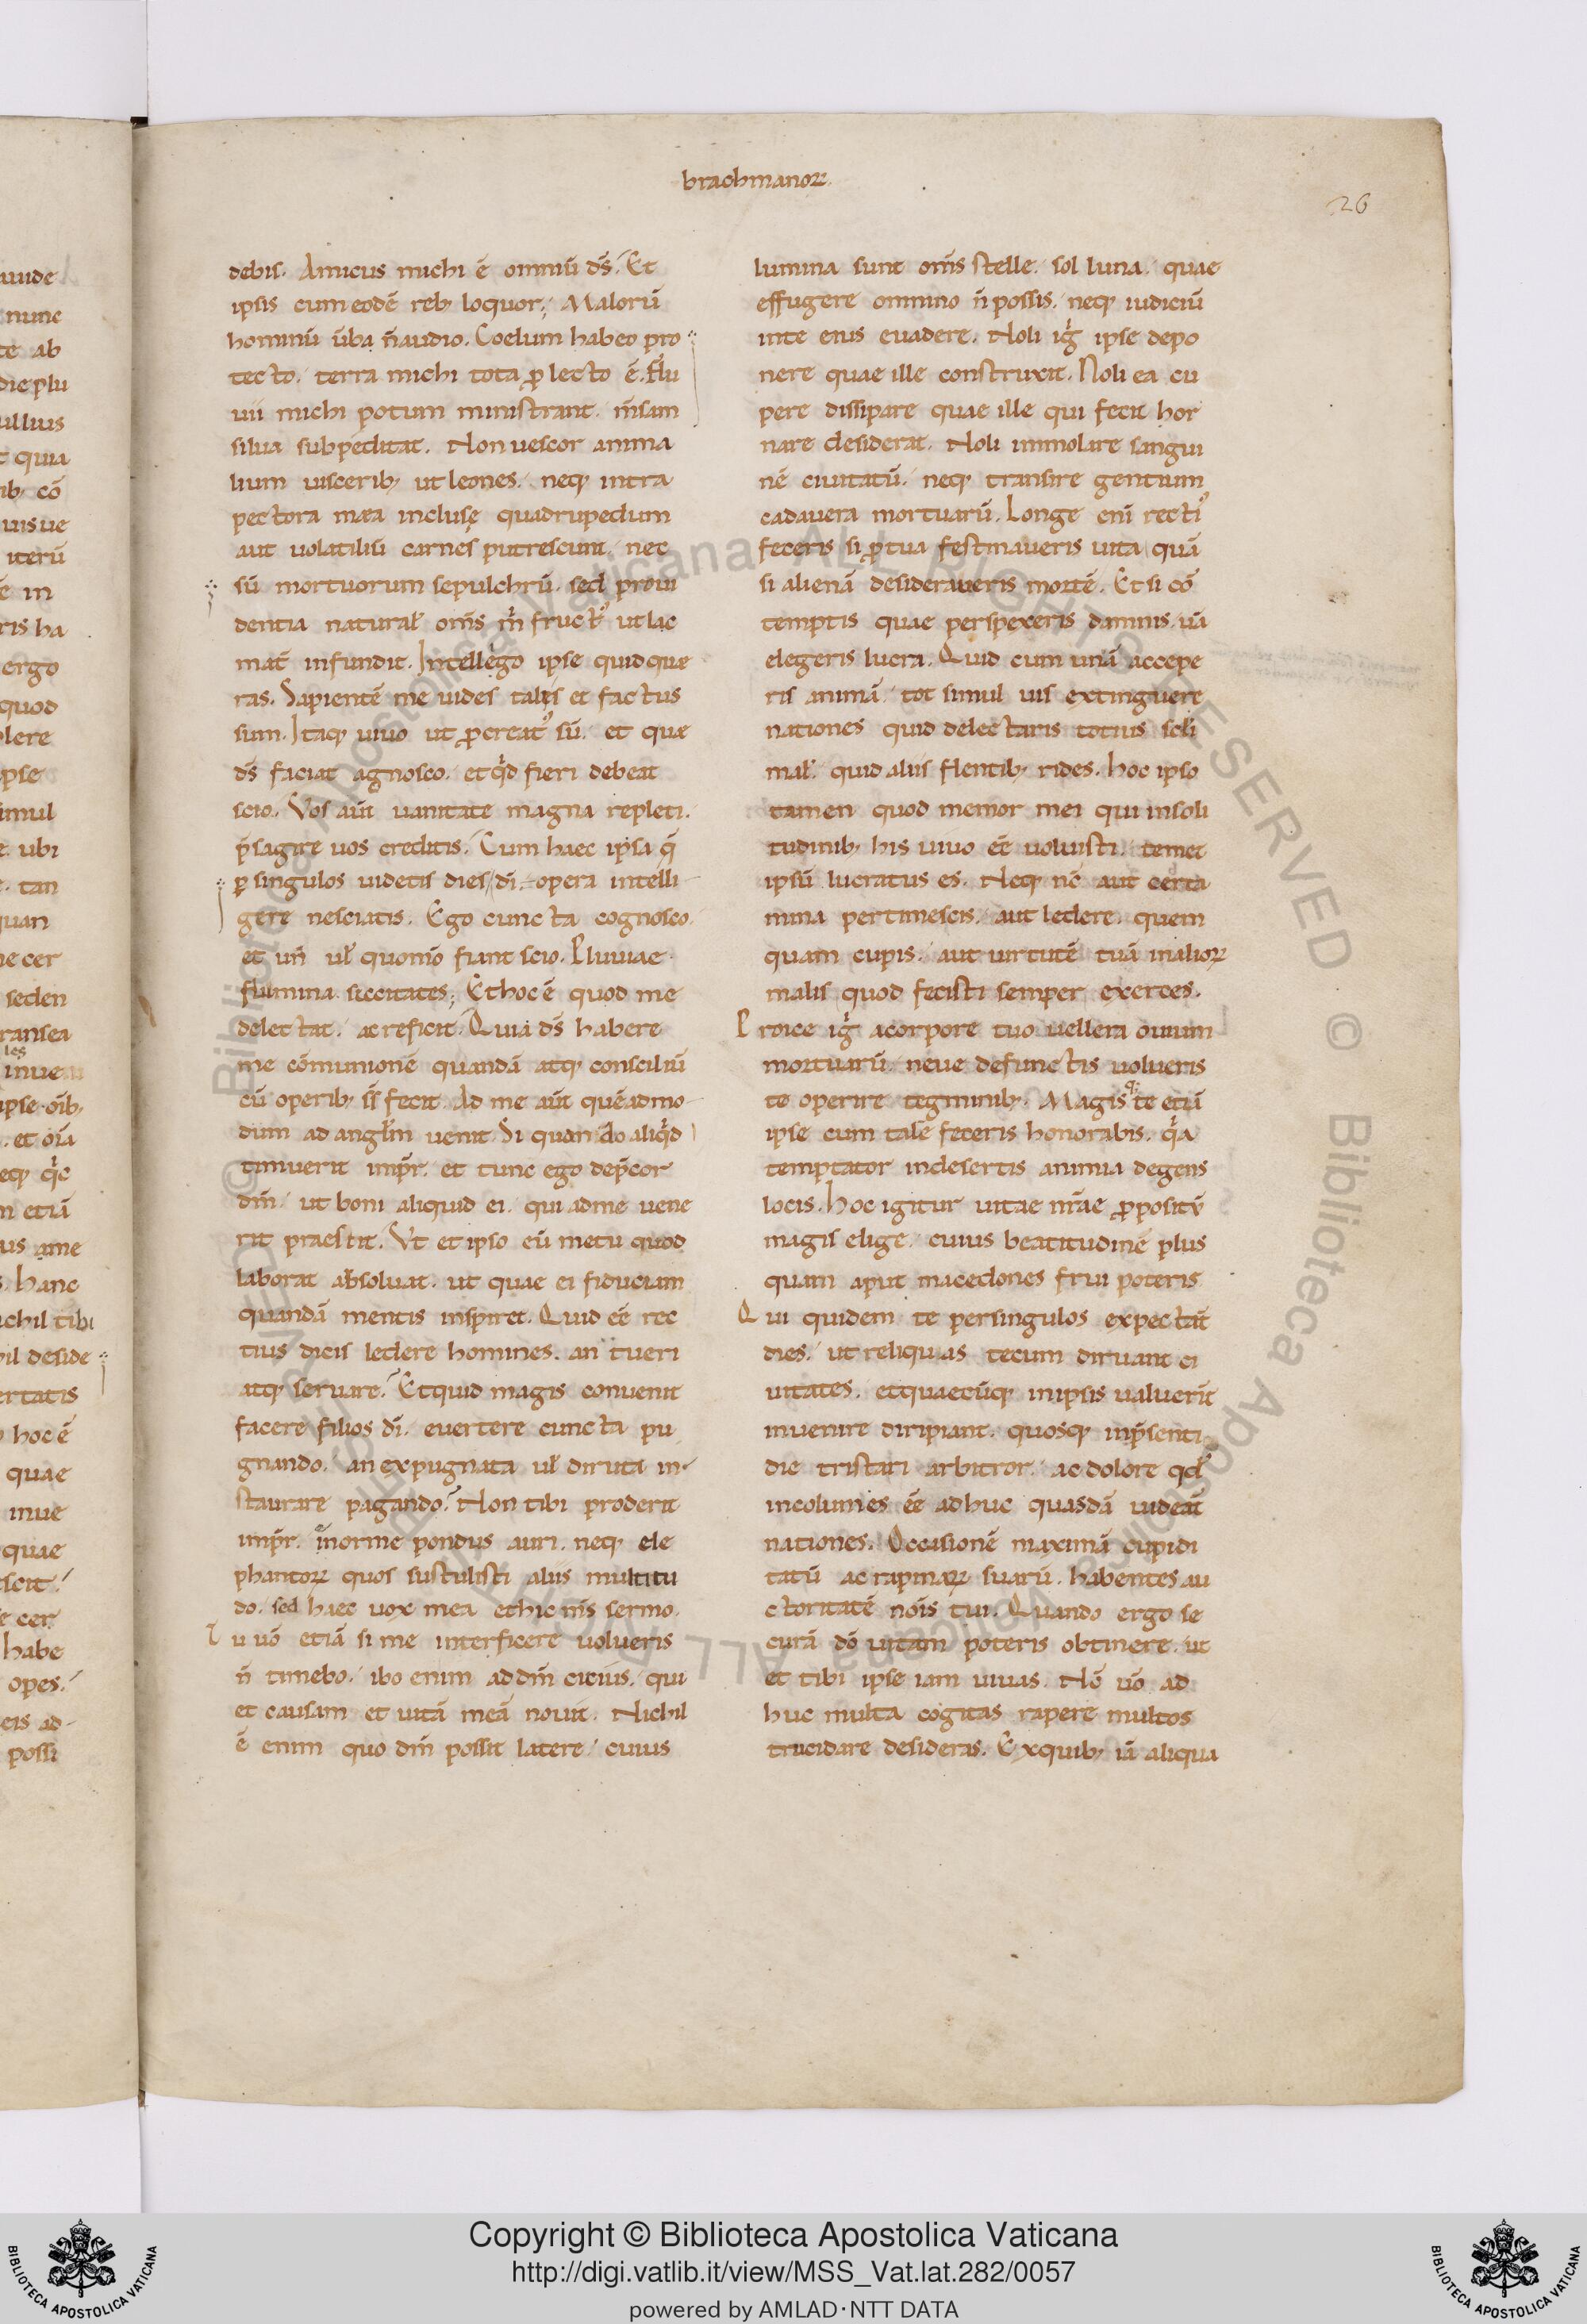 brachmanoꝝ
26
debis. Amicus michi ē omniū d̄s. Et
ipsis cum eodē reb; loquor; Maloru̅
hominū ūba n̄ audio. Coelum habeo pro
tecto. terra michi tota ꝓ lecto ē. Flu
uii michi potum ministrant. m̄sam
silua subpeditat. Non uescor anima
lium uiscerib; ut leones. neq; intra
pectora mea inclusę quadrupedum
aut uolatilisi carnes putrescunt. nec
sū mortuorum sepulchrū. sed proui
dentia natural̄ om̄s m̄ fruct᷒ ut lac
mat̄ infundit. Intellego ipse quid quæ
ras. Sapientē me uides talis et factus
sum. Itaq; uiuo ut ꝓcreat᷒ sū. et quæ
d̄s faciat agnosco. et qd̄ fieri debeat
scio. Vos aūt uanitate magna repleti.
p̄sagire uos creditis. Cum haec ipsa q̄
ꝑ singulos uidetis dies / d̄i opera intelli
gere nesciatis. Ego cuncta cognosco.
et un̄ ul̄ quomō fiant scio. Pluuiae
flumina siccitates; Et hoc ē quod me
delectat. ac reficit. Quia d̄s habere
me cōmunionē quandā atq; consciliū
cū operib; s̄s fecit. Ad me aūt quēadmo
dum ad angl̄m uenit. Si quando aliqd̄
timuerit imp̄r. et tunc ego dep̄cor
dm̄. ut boni aliquid ei. qui ad me uene
rit praestit. Vt et ipso eū metu quod
laborat absoluat. ut quae ei fiduciam
quandā mentis inspiret. Quid eē rec
tius dicis ledere homines. an tueri
atq; seruare? Et quid magis conuenit
facere filios d̄i. euertere cuncta pu
gnando. an expugnata ul̄ diruta in
staurare pagando? Non tibi proderit
imp̄r. inorme pondus auri. neq; ele
phantoꝝ quos sustulisti aliis multitu
do. sed haec uox mea et hic m̄s sermo.
Tu uō etiā si me interficere uolueris
n̄ timebo. ibo enim ad dm̄ citius. qui
et causam et uitā meā nouit. Nichil
ē enim quo dm̄ possit latere. cuius
lumina sunt om̄s stelle. sol luna. quae
effugere omnino n̄ possis. neq; iudiciū
inte eius euadere. Noli ig̅ ipse depo
nere quae ille construxit. Noli ea cu
pere dissipare quae ille qui fecit hor
nare desiderat. Noli immolare sangui
nē ciuitatū. neq; transire gentium
cadauera mortuarū. Longe enī recti᷒
feceris si ꝓ tua festinaueris uita quā
si alienā desideraueris mortē. Et si cō
temptis quae perspexeris damnis. ūa
elegeris lucra. Quid cum unā accepe
ris animā. tot simul uis extinguere
nationes quid delectaris totius scl̄i
mal̄. quid aliis flentib; rides. Hoc ipso
tamen quod memor mei qui in soli
tudinib; his uiuo eē uoluisti. temet
ipsū lucratus es. Neq; nē aut certa
mina pertimescis. aut ledere quem
quam cupis. aut uirtutē tuā in alioꝝ
malis quod fecisti semper exerces.
Proice ig̅ a corpore tuo uellera ouium
mortuarū. neue defunctis uolueris
te operire tegminib;. Magis q; te etiā
ipse cum tale feceris honorabis. qa
temptator in desertis animia degens
locis. Hoc igitur uitae n̄rae ꝓpositū
magis elige. cuius beatitudinē plus
quam aput macedones frui poteris.
Qui quidem te per singulos expectāt
dies. ut reliquias tecum diruant ci
uitates. et quaecūq; in ipsis ualuerīt
inuenire diripiant. quosq; inp̄senti
die tristari arbitror. ac dolore qd̄
incolumes eē adhuc quasdā uideāt
nationes. Occasionē maximā cupidi
tatū ac rapinaꝝ suarū. habentes au
ctoritatē nōis tui. Quando ergo se
curā dō uitam poteris obtinere. ut
et tibi ipse iam uiuas. Nō uō ad
huc multa cogitas rapere multos
trucidare desideras. Ex quib; iā aliqua
Copyright © Biblioteca Apostolica Vaticana
http://digi.vatlib.it/view/MSS_Vat.lat.282/0057
powered by AMLAD·NTT DATA